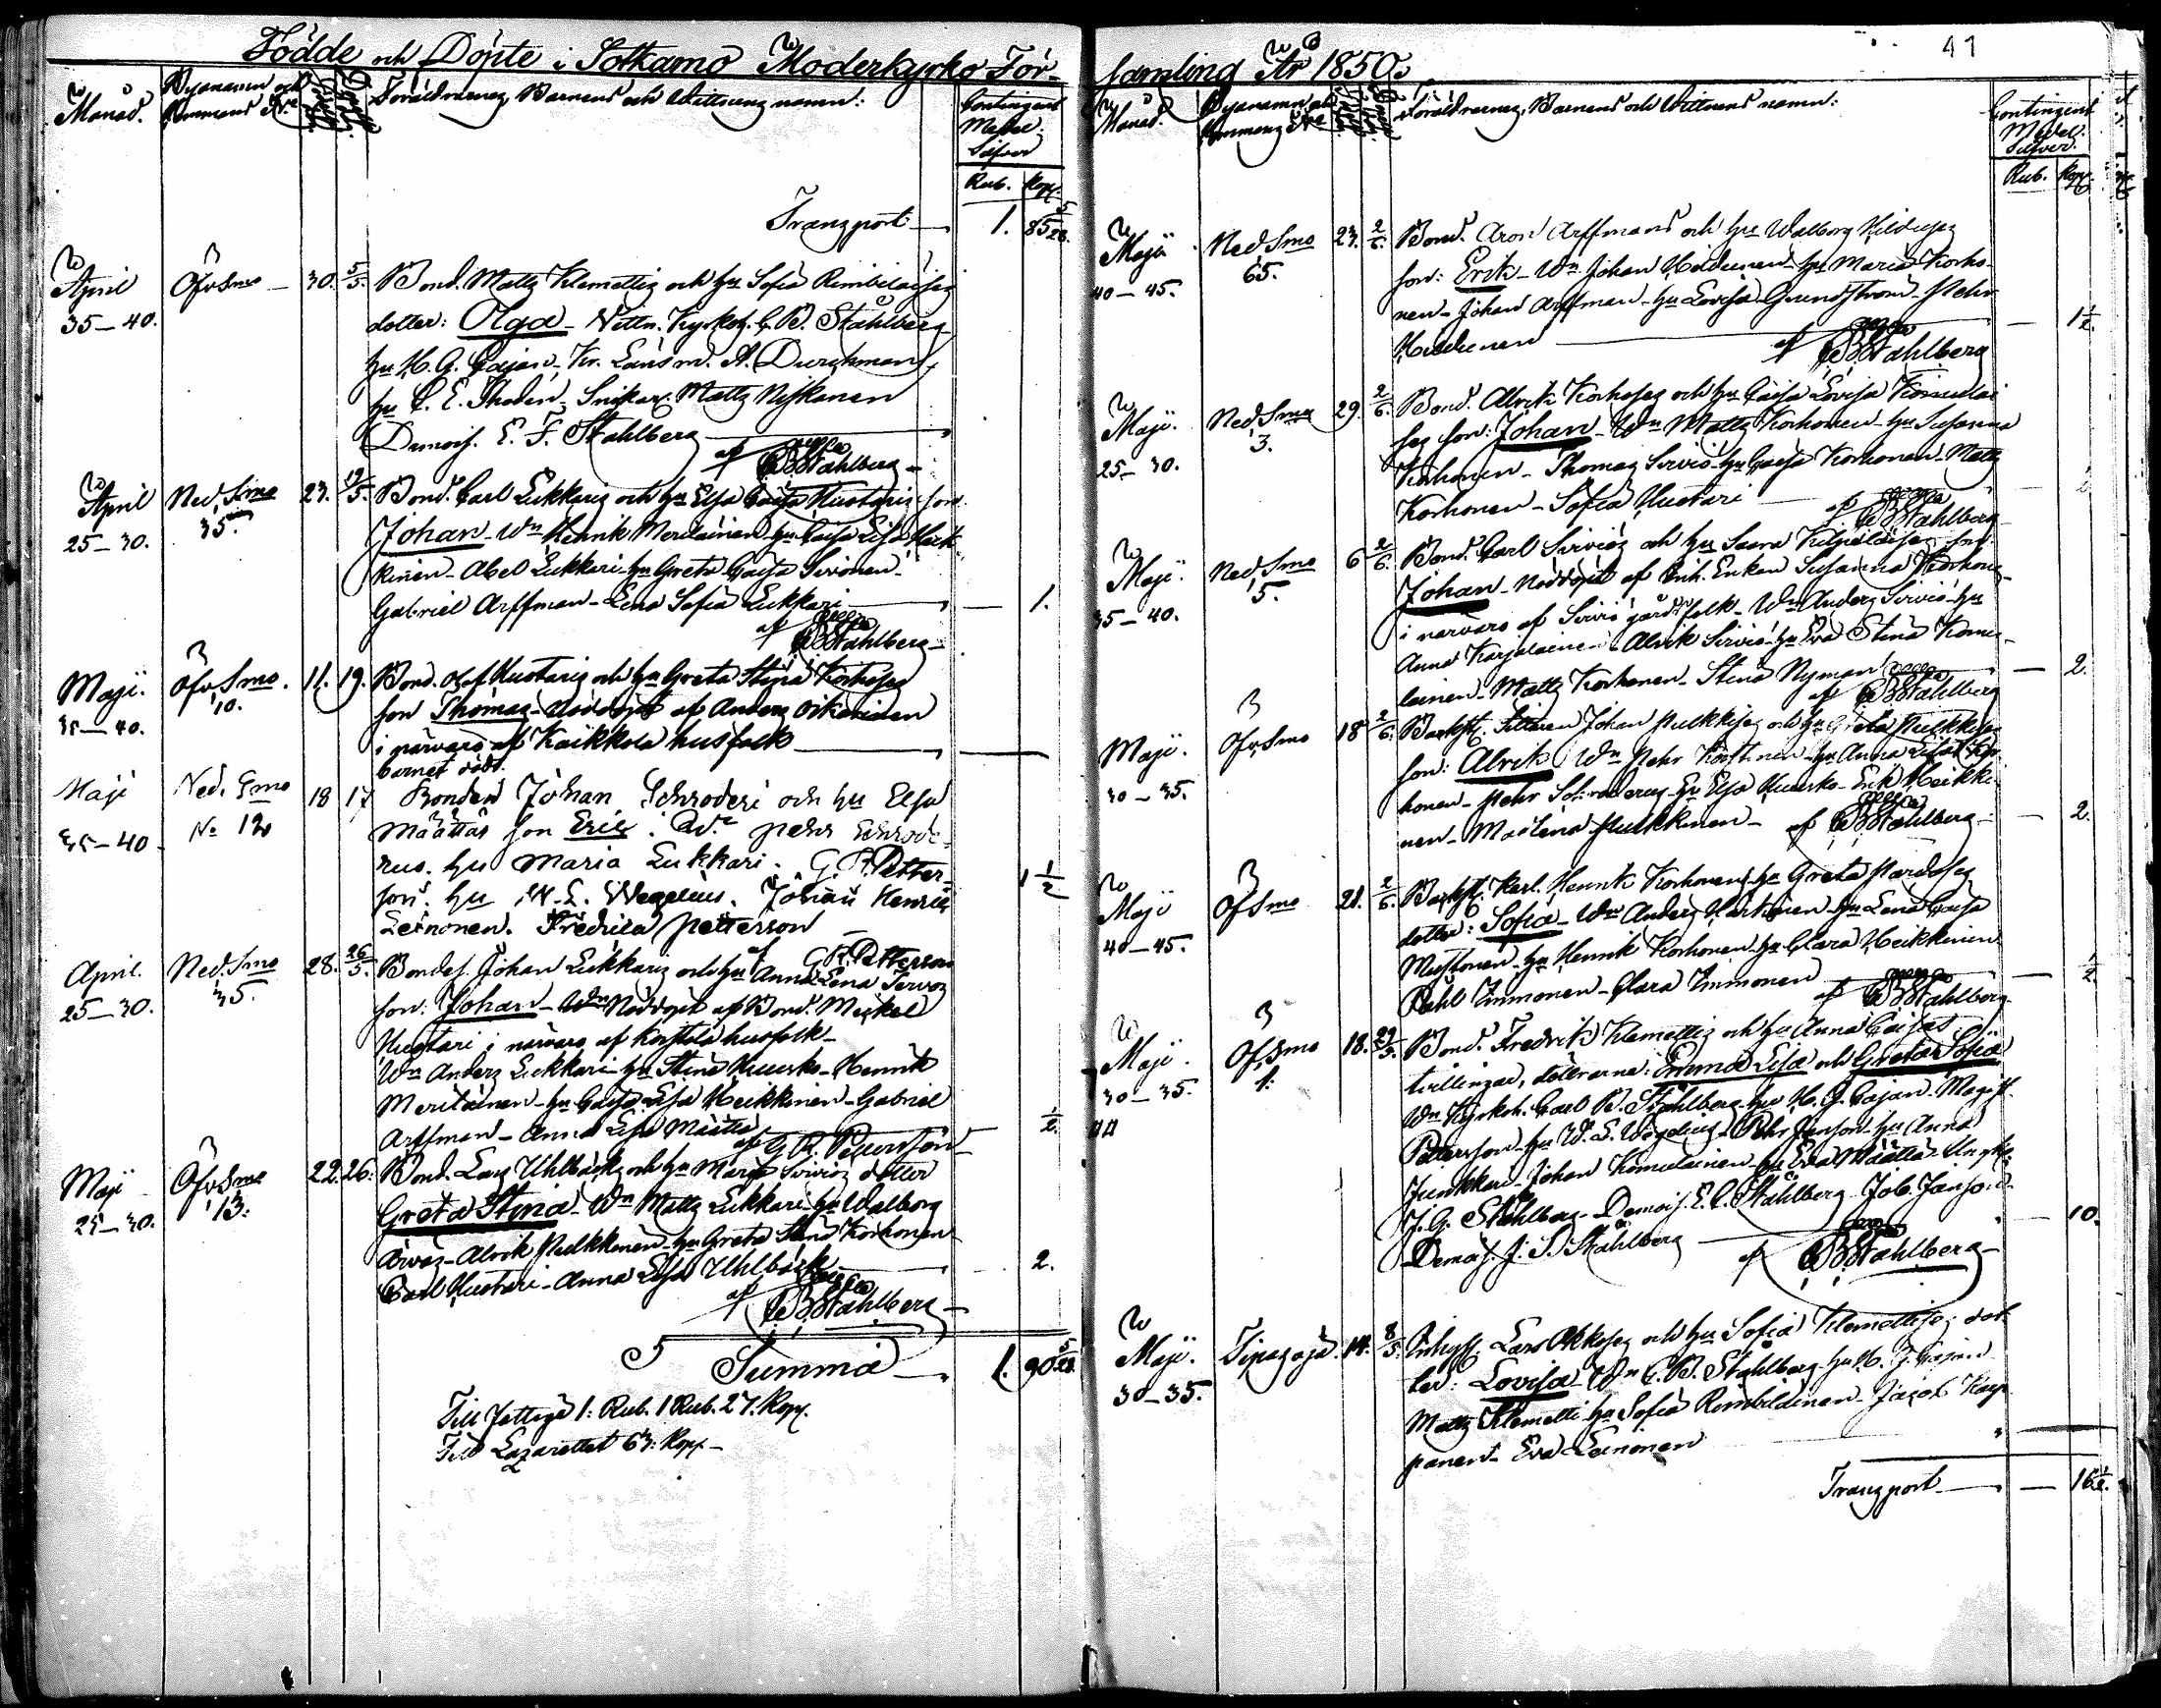 Födde och Döpte i Sotkamo Moderkyrko För-
Månad.
Byanamn och
Hemmans No
Föräldrarnas, Barnens och Wittnens namn:
Contingent
Medel.
Silfver
Rub. Kop.
Transport 1. 85 5/28.
April
35–40.
Öfv. Smo
30. 5/5.
Bond. Matts Klemettis och hu Sofia Rimbiläises
dotter: Olga – Vittn. Kyrkoh. C. B. Ståhlberg
hu H. G. Cajan, Kr. Länsm. A. Durchman,
hu C. E. Thodén – Snikar. Matts Niskanen
Demois. E. F. Ståhlberg
af CB Ståhlberg
April
25–30.
Ned. Smo
35.
23. 12/5.
Bond. Carl Lukkaris och hu Elsa Caisa Huotaris son
Johan – Wn Henrik Meriläinen – hu Caisa Lisa Heik-
kinen – Abel Lukkari – hu Greta Caisa Sirvonen –
Gabriel Arffman – Lena Sofia Lukkari 1.
af CB Ståhlberg
Maji.
35–40.
Öfv. Smo.
10.
11. 19.
Bond. Olof Huotaris och hu Greta Stina Korhoses
son Thomas – Nöddöpt af Anders Oikarinen
i närvaro af Kaikkola husfolk
barnet död.
Maji
35–40
Ned. Smo
No 12
18 17
Bonden Johan Schroderi och hu Elsa
Määttäs son Eric. Wn Pehr Schrode-
rus. hu Maria Lukkari. G. R. Petter-
son. hu W. L. Wegelius. Johan Henric
Leinonen. Fredrica Petterson 1 1/2
af G R Petterson
April.
25–30.
Ned. Smo
35.
28. 26/5.
Bondes. Johan Lukkaris och hu Anna Lena Servos
son: Johan – Nöddöpt af Bond. Mickel
Huotari i närvaro af Korhola husfolk –
Wn Anders Lukkari – hu Stina Huusko – Henrik
Meriläinen – hu Caisa Lisa Heikkinen – Gabriel
Arffman – Anna Lisa Määttä 1/2.
af G R Petterson
Maji
25–30.
Öfv. Smo
13.
22. 26.
Bond. Lars Uhlbäcks och hu Maria Serviös dotter
Greta Stina – Wn Matts Lukkari – hu Walborg
Alrik Pulkkinen – hu Greta Stina Korhonen
Carl Huotari – Anna Lisa Uhlbäck 2.
af CB Ståhlberg
Summa 1. 90 5/28.
Till Fattiga 1: Rub. 1 Rub. 27. Kop.
Till Lazarettet 63: Kop –
samling År 1850.
41
Månad.
Byanamn och
Hemmans No
Föräldrarnas, Barnens och Wittnens namn:
Contingent
Medel.
Silfver.
Rub. Kop.
Maji
40–45.
Ned. Smo
65.
23. 2/6.
Bond. Aron Arffmans och hu Walborg
son: Erik – Wn Johan Heikkinen – hu Maria Korho-
nen – Johan Arffman – hu Lovisa Grundström – Pehr
Heikkinen 1 1/2.
af CB Ståhlberg
Maji.
25–30.
Ned. Smo
3.
29. 2/6.
Bond. Alrik Korhoses och hu Caisa Lovisa Komulai
ses son: Johan – Wn Matts Korhonen – hu Susanna
Korhonen – Thomas Serviö – hu Caisa Korhonen – Matts
Korhonen – Sofia Huotari
af CB Ståhlberg
Maji.
35–40.
Ned. Smo
5.
6 2/6.
Bond. Carl Serviös och hu Saara son:
Johan – Nöddöpt af Inh. Enkan Susanna Korhonen
i närvaro af Serviö gårdsfolk – Wn Anders Serviö – hu
Anna Karjalainen – Alrik Serviö – hu Eva Stina Komu-
lainen – Matts Korhonen – Stina Nyman 2.
af CB Ståhlberg
Maji.
30–35.
Öfv. Smo
18 2/6.
Johan Pulkkises och hu Greta Pulkkises
son: Alrik Wn Pehr Korhonen – hu Anna Lisa Kor-
honen – Pehr Schroderus – hu Elsa Huusko – Erik Heikki-
nen – Maslena Pulkkinen – af CB Ståhlberg 2.
Maji
40–45.
Öf Smo
21. 2/6.
Henrik Korhonens hu Greta Pardoses
dotter: Sofia – Wn Anders – hu Lena Caisa
Mustonen – hu Henrik Korhonen – hu Clara Heikkinen
Påhl Immonen – Clara Immonen 1/2.
af CB Ståhlberg
Maji.
30–35.
Öf. Smo
1.
18. 29/5.
Bond. Fredrik Klemettis och hu Anna Caisas
tvillingar, döttrarne: Emma Lisa och Greta Sofia
Wn Kyrkoh. Carl B. Ståhlberg – hu H. G. Cajan – Magist.
Petterson – hu W. L. Wegelius – Pehr Janson – hu Anna
Junkkari – Johan Komulainen – hu Eva Määttä – Ungk.
J. G. Ståhlberg – Demois. E. C. Ståhlberg – Job. Janson
Demois. J. S. Ståhlberg 10.
af CB Ståhlberg
Maji.
30–35.
Tipasoja.
14. 8/5.
Inhys. Lars Akkoses och hu Sofia Klemettises dot-
ter: Lovisa – Wn C. B. Ståhlberg – hu H. G. Cajan
Matts Klemetti – hu Sofia Rimbiläinen – Jacob Karp-
panen – Eva Leinonen
Transport 16 1/2.